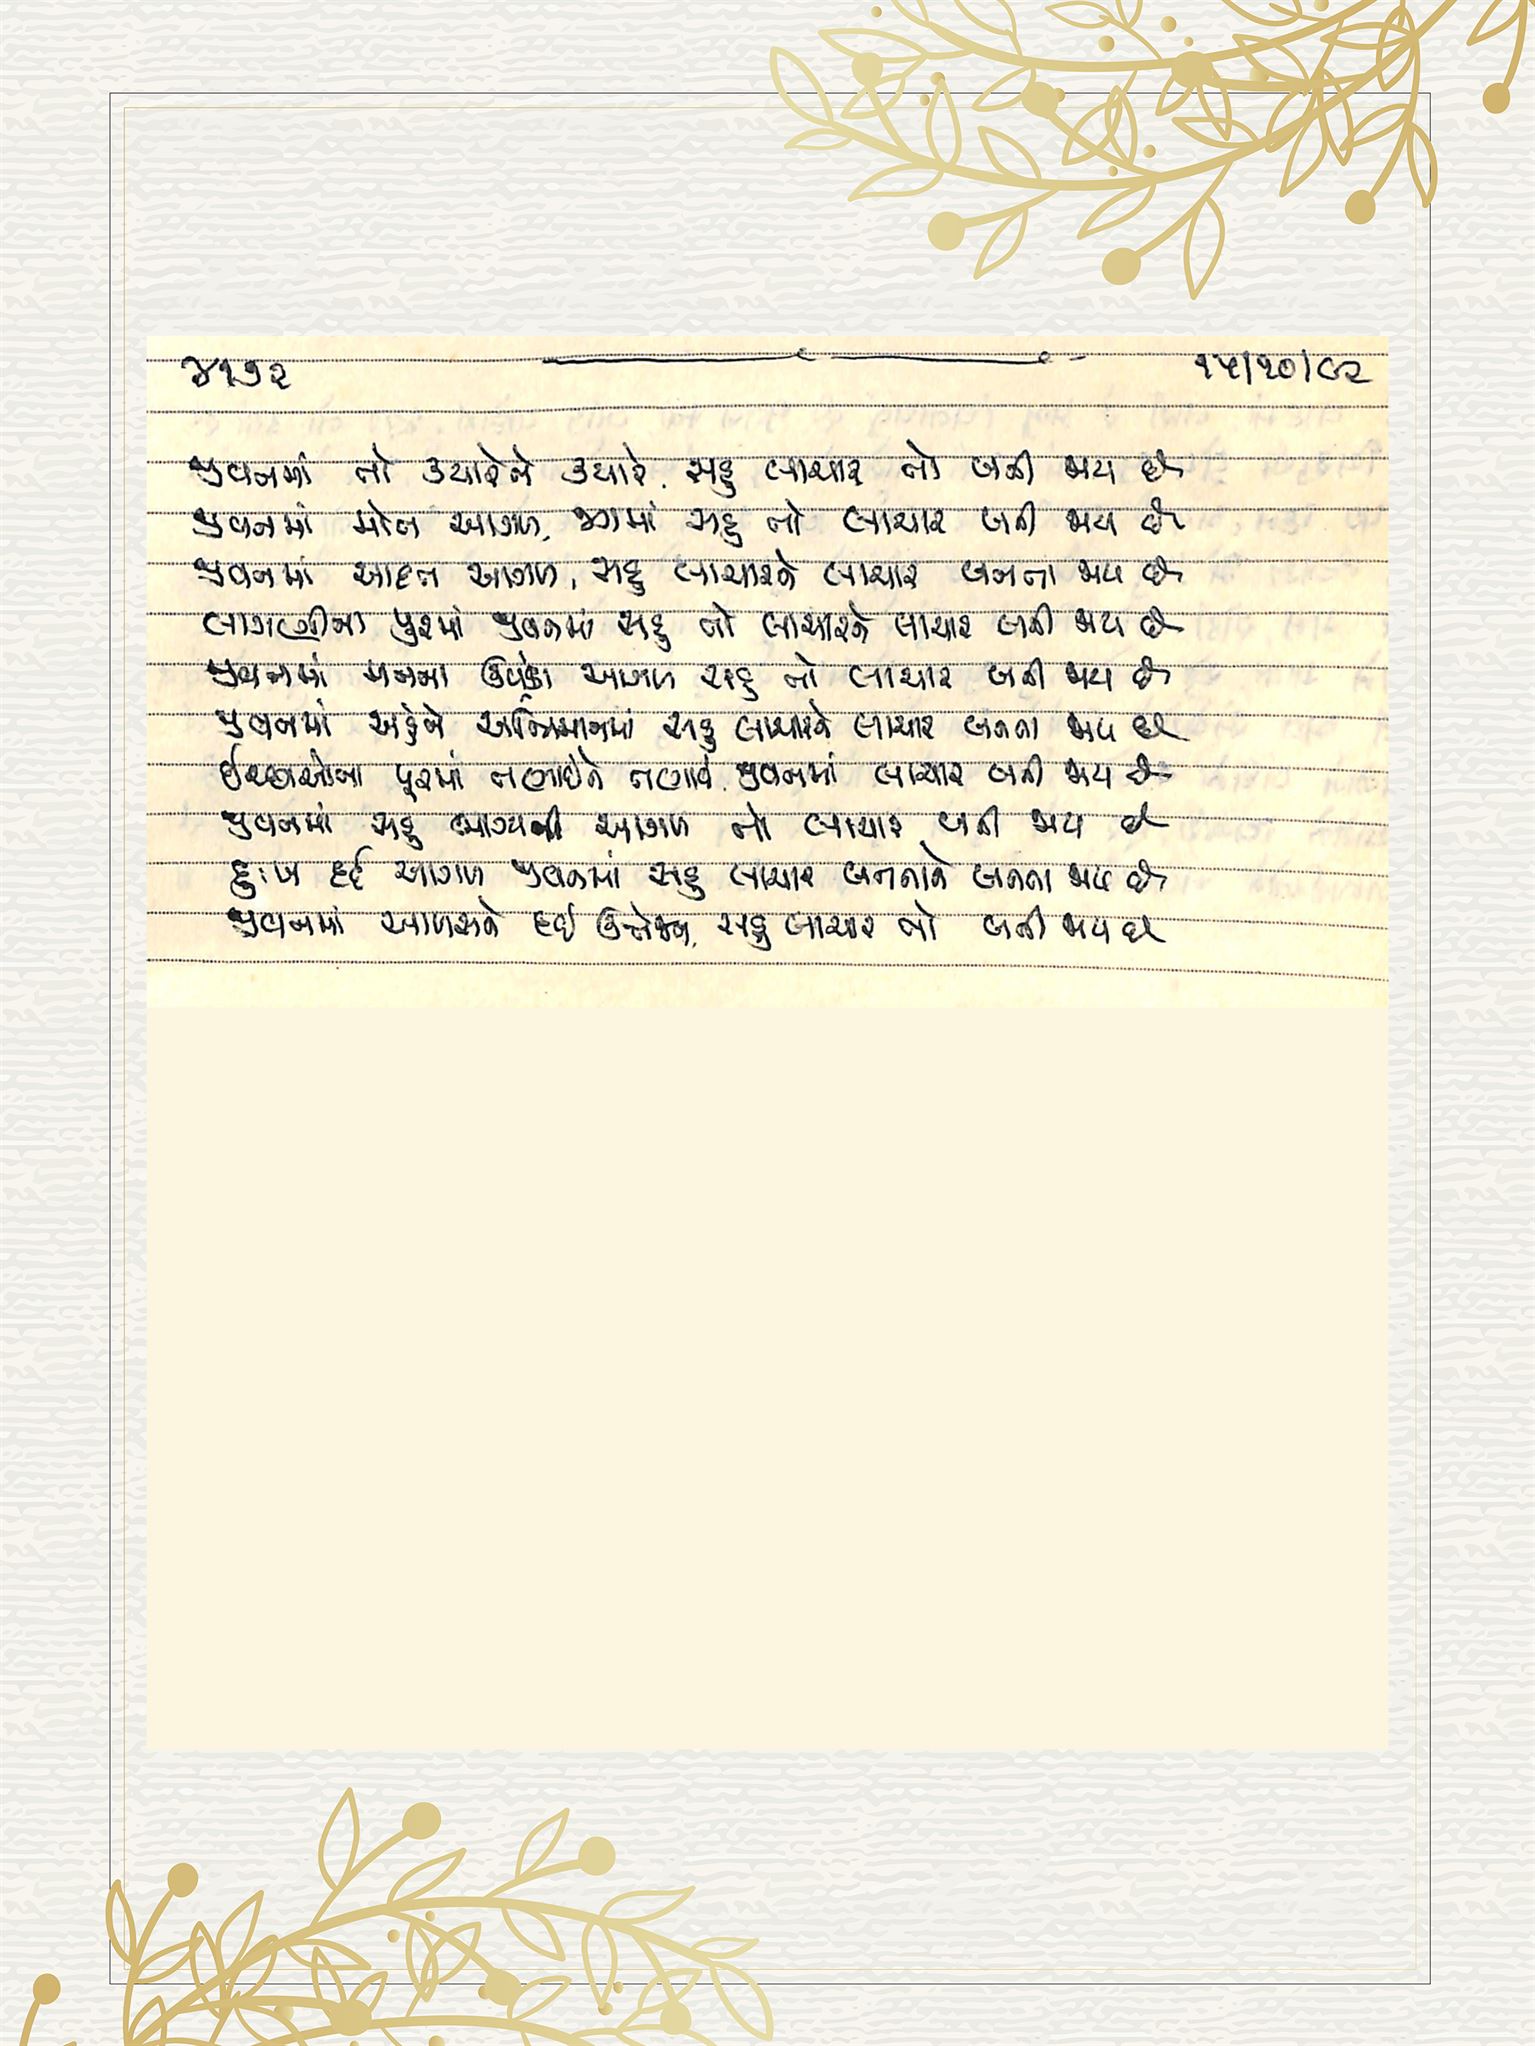 ૪૧૭૨ ૧૫/૧૦/૯૨
જીવનમાં તો ક્યારેને ક્યારે, સહુ લાચાર તો બની જાય છે
જીવનમાં મોત આગળ, જગમાં સહુ તો લાચાર બની જાય છે
જીવનમાં આદત આગળ, સહુ લાચારને લાચાર બનતા જાય છે
લાગણીના પુરમાં જીવનમાં સહુ તો લાચારને લાચાર બની જાય છે
જીવનમાં મનના આગળ સહુ તો લાચાર બની જાય છે
જીવનમાં અહંને અભિમાનમાં સહુ લાચારને લાચાર બનતા જાય છે
ઈચ્છાઓના પૂરમાં તણાઈને તણાઈ જીવનમાં લાચાર બની જાય છે
જીવનમાં સહુ ભાગ્યની આગળ તો લાચાર બની જાય છે
દુઃખ દર્દ આગળ જીવનમાં સહુ લાચાર બનતાને બનતા જાય છે
જીવનમાં આળસને દઈ ઉત્તેજન, સહુ લાચાર તો બની જાય છે